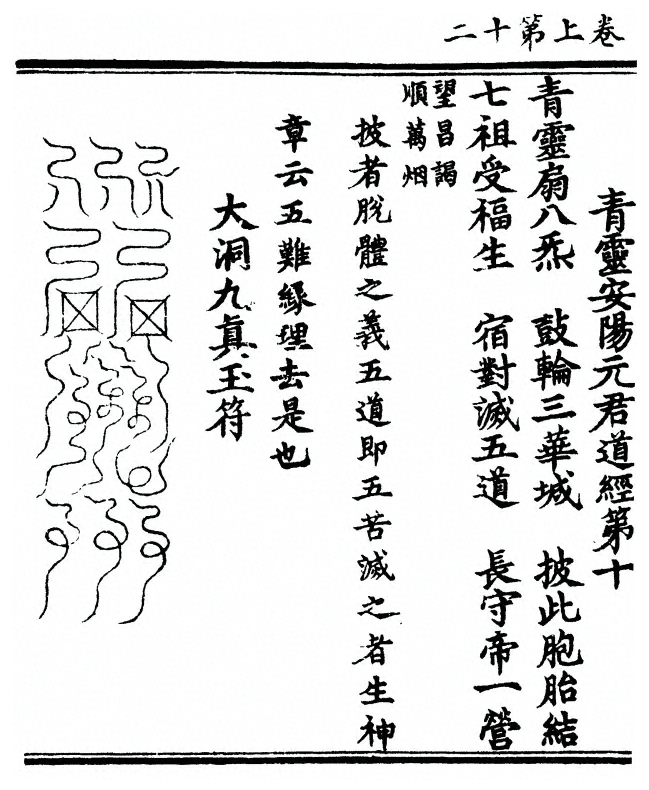 卷上第十二
青靈安陽元君道經第十
青靈扇八炁 鼓輪三華城 披此胞胎結
七祖受福生 宿對滅五道 長守帝一營
望昌謁
順萬烟
披者脫體之義五道即五苦滅之者生神
章云五難緣理去是也
大洞九真玉符